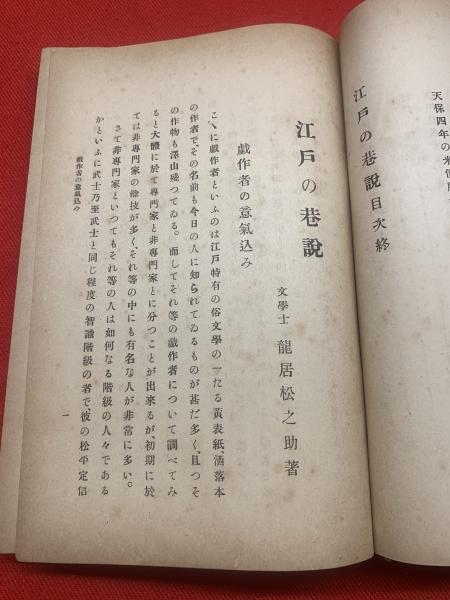 天保四年の米價
江戸の巷說目次終
江戸の巷說
文學士 龍居松之助著
戯作者の意氣込み
こゝに戯作者といふのは江戸特有の俗文學の一たる黃表紙、洒落本
の作者で、その名前も今日の人に知られてゐるものが甚だ多く、且つそ
の作物も澤山殘つてゐる。而してそれ等の戯作者について調べてみ
ると大體に於て專門家と非專門家とに分つことが出來るが、初期に於
ては非專門家の餘技が多く、それ等の中にも有名な人が非常に多い。
さて非專門家といつてもそれ等の人は如何なる階級の人々である
かといふに武士乃至武士と同じ程度の智識階級の者で、彼の松平定信
戯作者の意氣込み
一